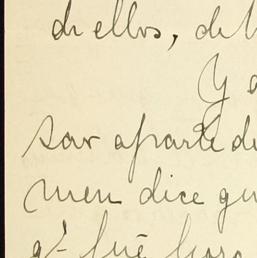 de ellos, de
Y
sar aparte de
men dice qu
qe fué